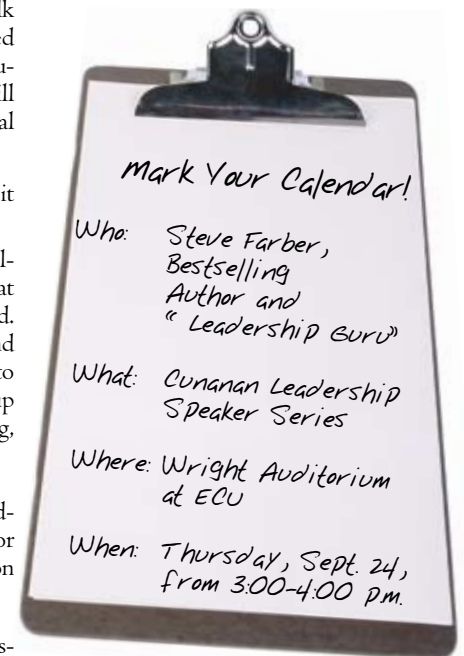 lk
ed
u-
ll
al
it
l-
at
d.
nd
to
up
g,
d-
or
on
s-
mark Your Calendar!
Who: Steve Farber,
Bestselling
Author and
“Leadership Guru”
What: Cunanan Leadership
Speaker Series
Where: Wright Auditorium
at ECU
When: Thursday, Sept. 24,
from 3:00-4:00 p.m.